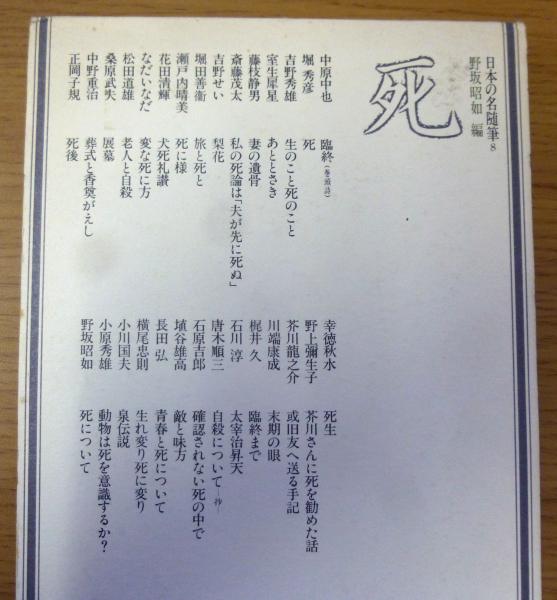 日本の名随筆8
野坂昭如 編
死
中原中也 臨終(巻頭詩)
堀 秀彦 死
吉野秀雄 生のこと死のこと
室生犀星 あととさき
藤枝静男 妻の遺骨
斎藤茂太 私の死論は「夫が先に死ぬ」
吉野せい 梨花
堀田善衞 旅と死と
瀬戸内晴美 死に様
花田清輝 犬死礼讃
なだいなだ 変な死に方
松田道雄 老人と自殺
桑原武夫 展墓
中野重治 葬式と香奠がえし
正岡子規 死後
幸徳秋水 死生
野上彌生子 芥川さんに死を勧めた話
芥川龍之介 或旧友へ送る手記
川端康成 末期の眼
梶井 久 臨終まで
石川 淳 太宰治昇天
唐木順三 自殺について―抄―
石原吉郎 確認されない死の中で
埴谷雄高 敵と味方
長田 弘 青春と死について
横尾忠則 生れ変り死に変り
小川国夫 泉伝説
小原秀雄 動物は死を意識するか?
野坂昭如 死について